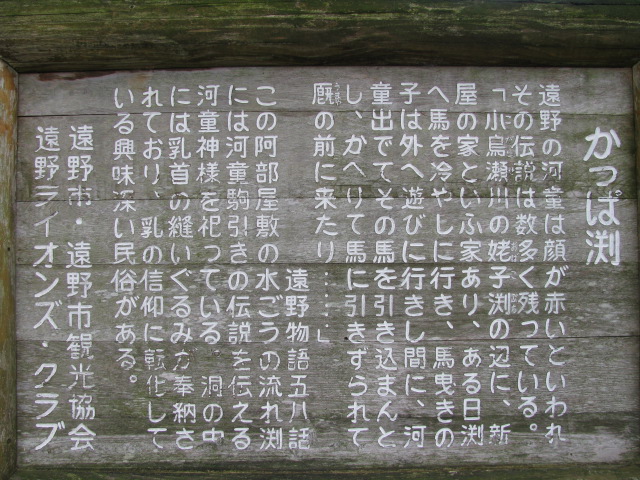 かっぱ渕
遠野の河童は顔が赤いといわれ
その伝説は数多く残っている。
「小烏瀬川の姥子渕の辺に、新
屋の家といふ家あり、ある日渕
へ馬を冷やしに行き、馬曳きの
子は外へ遊びに行きし間に、河
童出でてその馬を引き込まんと
し、かへりて馬に引きずられて
厩の前に来たり……」
遠野物語五八話
この阿部屋敷の水ごうの流れ渕
には河童駒引きの伝説を伝える
河童神様を祀っている 洞の中
には乳首の縫いぐるみが奉納さ
れており、乳の信仰に転化して
いる興味深い民俗がある。
遠野市・遠野市観光協会
遠野ライオンズ・クラブ